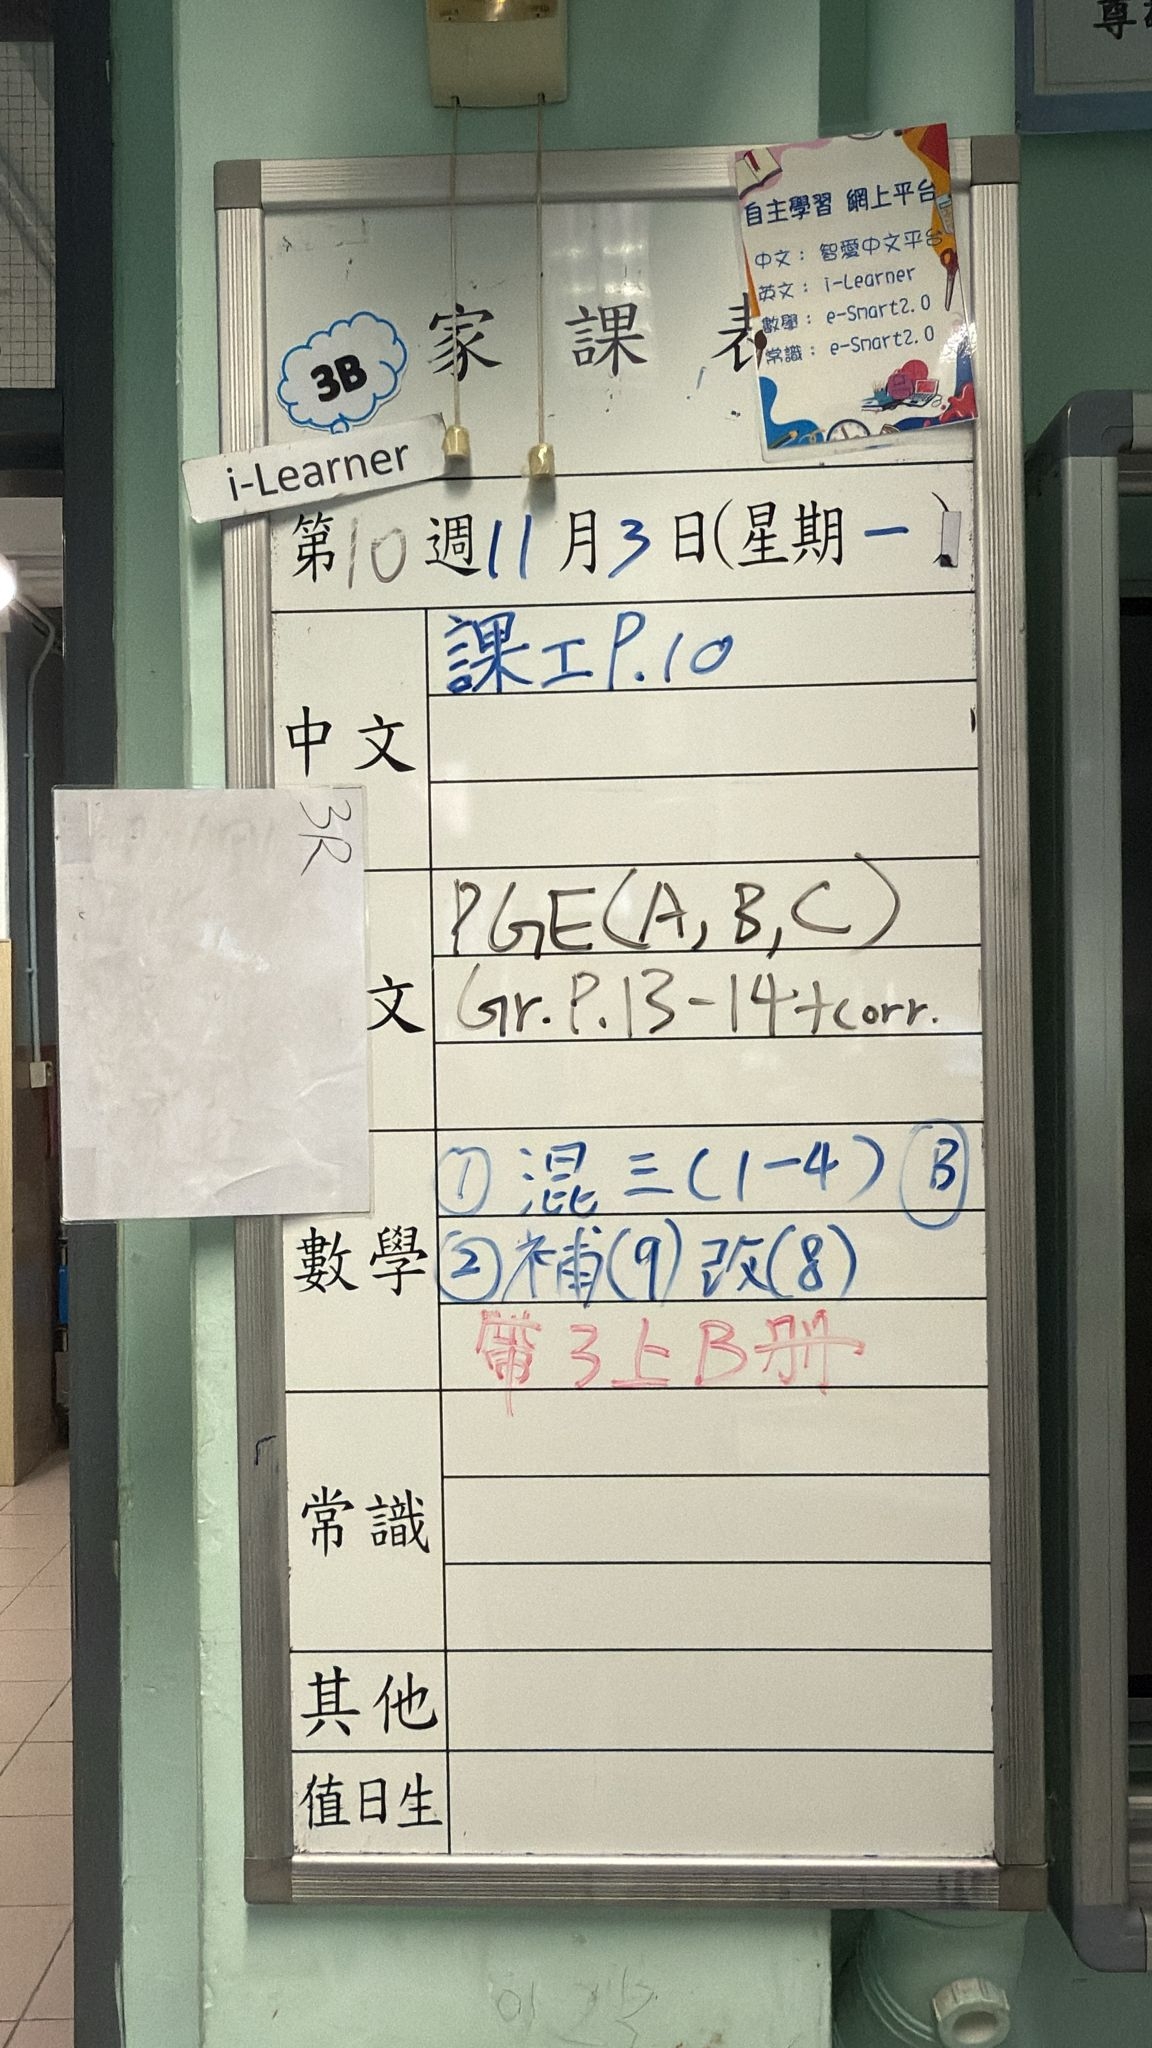 尊
自主學習 網上平台
中文： 智愛中文平台
英文： i-Learner
數學： e-Smart2.0
常識： e-Smart2.0
家課表
3B
i-Learner
第10週11月3日(星期一)
中文
課工P.10
3R
文
PGE(A,B,C)
Gr.P.13-14+corr.
數學
① 混三(1-4) Ⓑ
②補(9)改(8)
帶3上B册
常識
其他
值日生